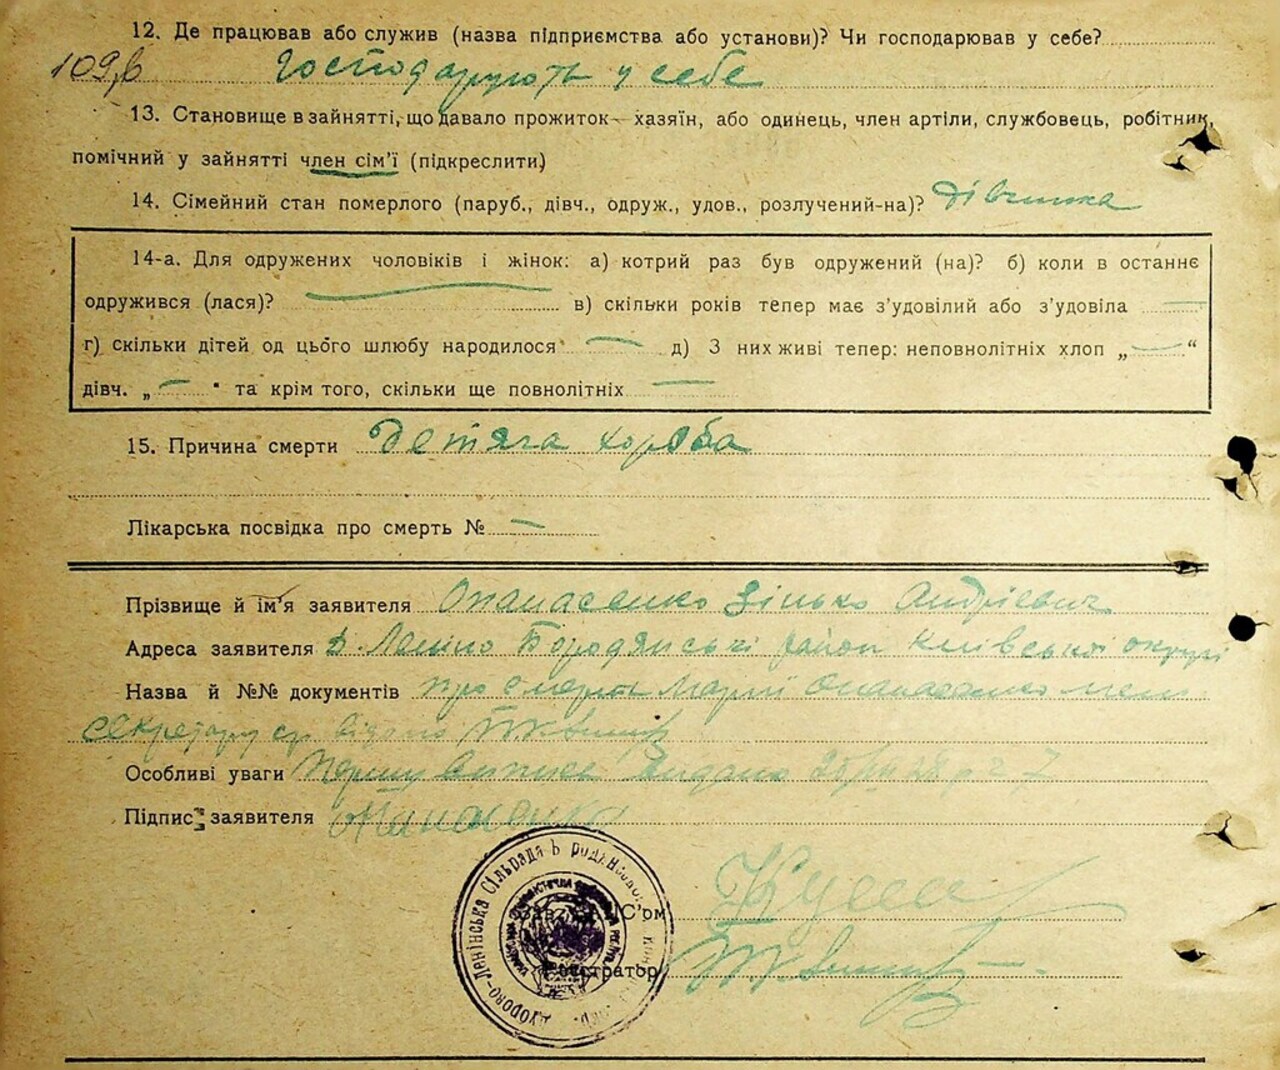 12. Де працював або служив (назва підприємства або установи)? Чи господарював у себе?
109,в Господарують у себе
13. Становище в зайнятті, що давало прожиток — хазяїн, або одинець, член артіли, службовець, робітник,
помічний у зайнятті член сім'ї (підкреслити)
14. Сімейний стан померлого (паруб., дівч., одруж., удов., розлучений-на)? Дівчинка
14-а. Для одружених чоловіків і жінок: а) котрий раз був одружений (на)? б) коли в останнє
одружився (лася)? в) скільки років тепер має з'удовілий або з'удовіла —
г) скільки дітей од цього шлюбу народилося — д) З них живі тепер: неповнолітніх хлоп „—“
дівч. „—“ та крім того, скільки ще повнолітніх —
15. Причина смерти Детяга хороба
Лікарська посвідка про смерть № —
Прізвище й ім'я заявителя Опанасенко Зінько Андрієвич
Адреса заявителя Бородянські район Київської округи
Назва й №№ документів про смерть Марії Опанасенко
секретару
Особливі уваги Видано
Підпис заявителя Опанасенко
Дуброво-Ленінська Сільрада Бородянського
Зав. ЗАГС'ом
Реєстратор